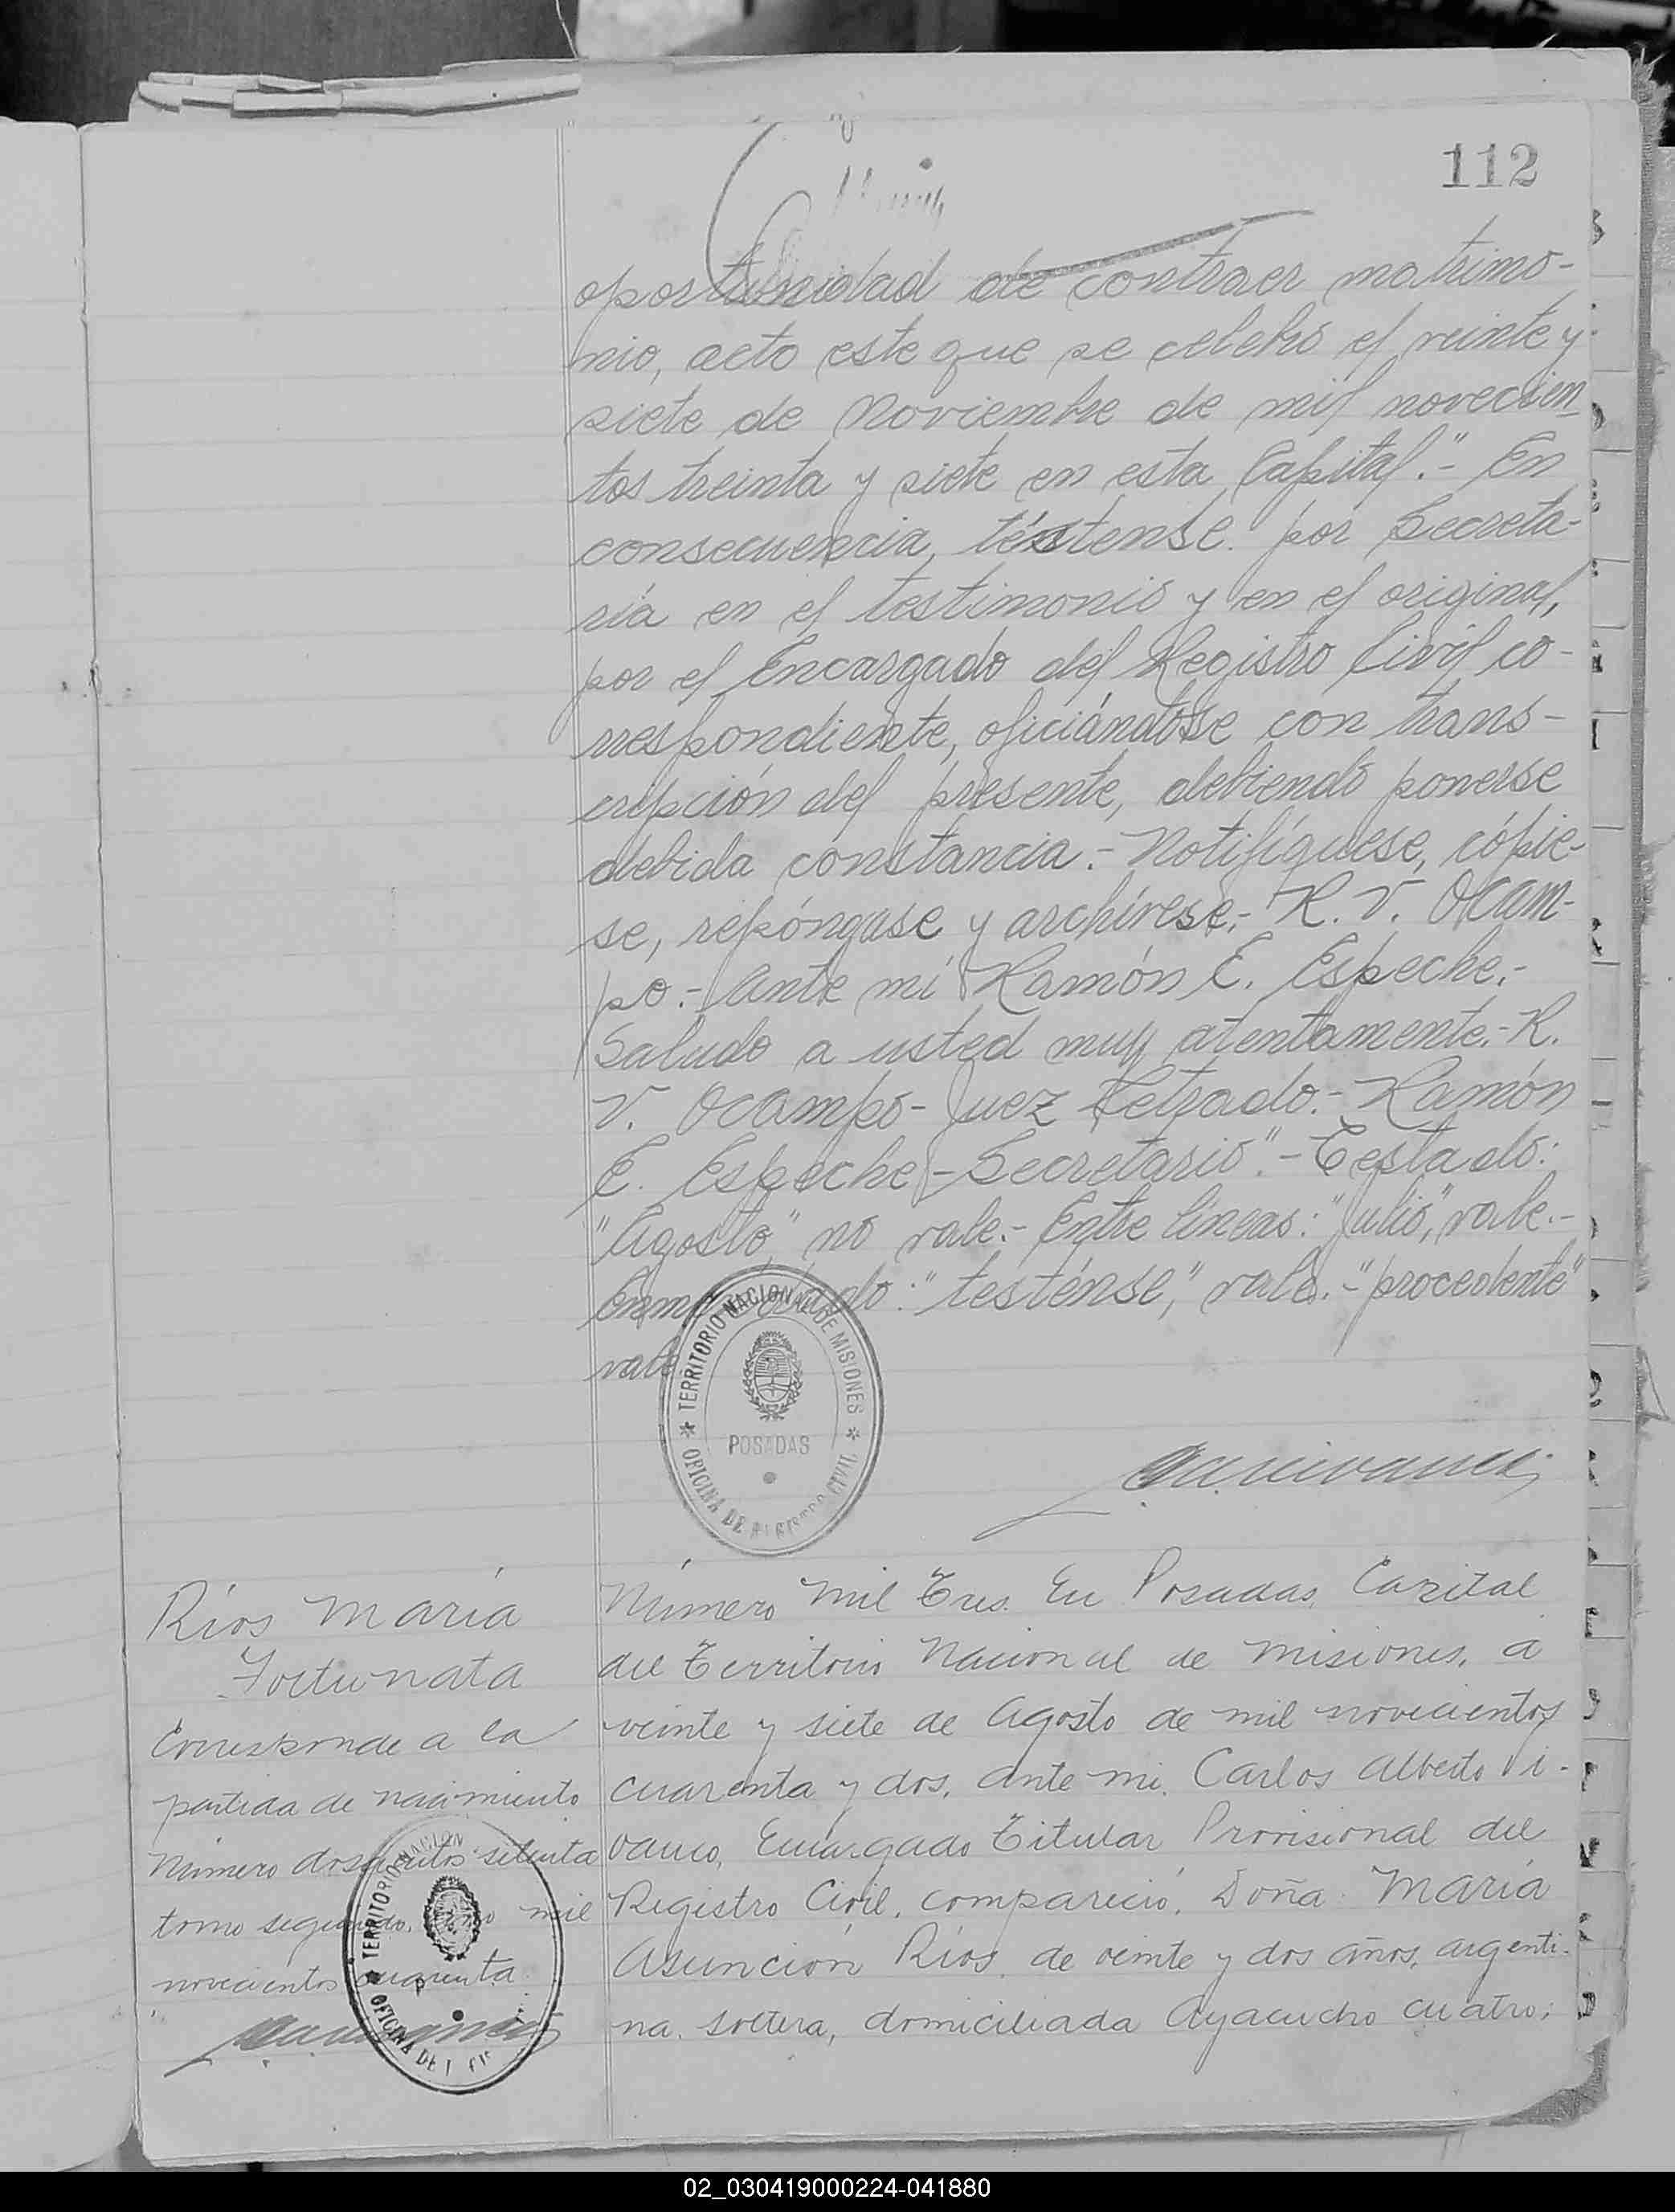 112
oportunidad de contraer matrimo-
nio, acto este que se celebró el veinte y
siete de Noviembre de mil novecien
tos treinta y siete en esta Capital." - En
consecuencia, téstense por Secreta-
ría en el testimonio y en el original,
por el Encargado del Registro Civil co-
rrespondiente, oficiándose con trans-
cripción del presente, debiendo ponerse
debida constancia.- Notifíquese, cópie-
se, repóngase y archívese.- R. V. Ocam-
po.- Ante mí Ramón E. Espeche.-
Saludo a usted muy atentamente.- R.
V. Ocampo - Juez Letrado.- Ramón
E. Espeche - Secretario".- Testado:
"Agosto" no vale.- Entre líneas: "Julio", vale.-
"testénse", vale.- "procedente"
vale
TERRITORIO NACIONAL DE MISIONES
POSADAS
OFICINA DE REGISTRO CIVIL
Ríos María
Fortunata
Corresponde a la
partida de nacimiento
número doscientos setenta
tomo segundo, año mil
novecientos cuarenta
TERRITORIO NACION
OFICINA DE
Número mil Tres. En Posadas, Capital
del Territorio Nacional de Misiones, a
veinte y siete de Agosto de mil novecientos
cuarenta y dos, ante mí, Carlos Alberto Vi-
vanco, Encargado Titular Provisional del
Registro Civil, compareció, Doña María
Asunción Ríos, de veinte y dos años, argenti-
na, soltera, domiciliada Ayacucho cuatro;
02_030419000224-041880